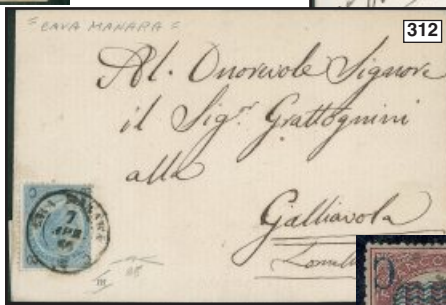 = CAVA MANARA =
312
Al. Onorevole Signore
il Sig.r Grattognini
alla
Galliavola
CAVA MANARA
7
APR